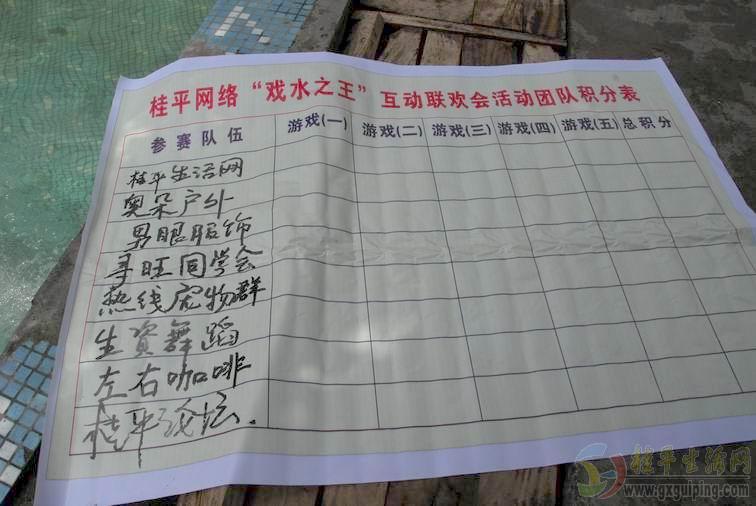 桂平网络“戏水之王”互动联欢会活动团队积分表
参赛队伍 游戏(一) 游戏(二) 游戏(三) 游戏(四) 游戏(五) 总积分
桂平生活网
奥朵户外
男眼服饰
寻旺同学会
热线宠物群
生资舞蹈
左右咖啡
桂平论坛.
桂平生活网
www.gxguiping.com